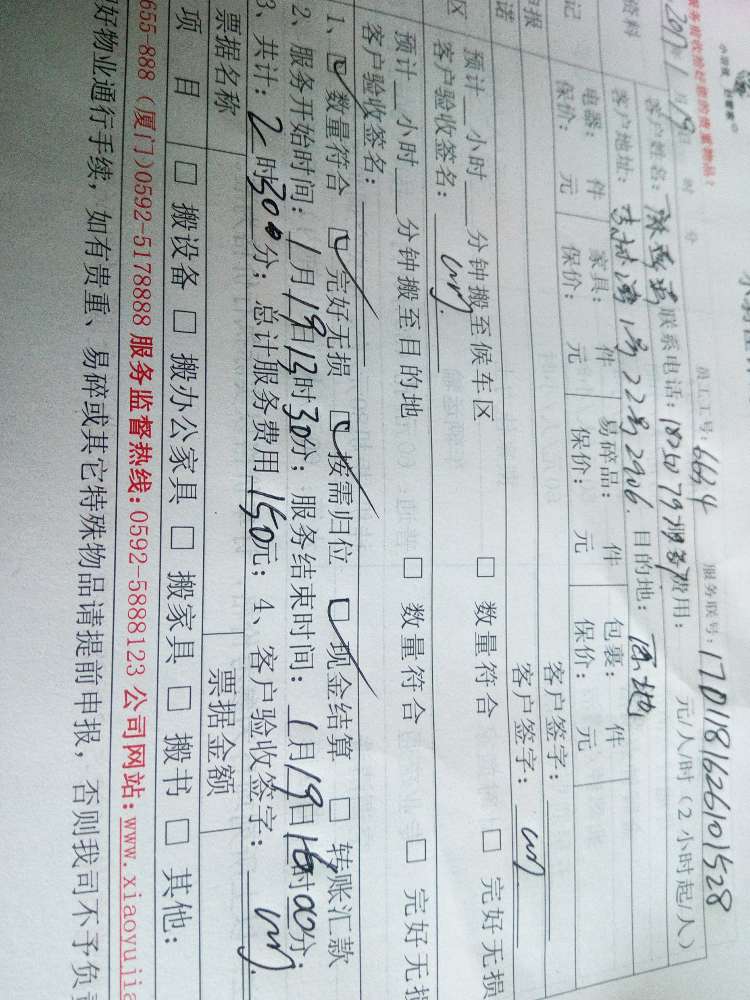 小羽佳
服务前收拾好您的贵重物品!
员工工号: 6624 服务联号: 1701181626101528
2017年1月19日 时 分
客户姓名: 联系电话: 费用: 元/人/时(2小时起/人)
资料
客户地址: 22号2906. 目的地: 原地
记
电器: 件 家具: 件 易碎品: 件 包裹: 件
保价: 元 保价: 元 保价: 元 保价: 元
客户签字:
客户签字:
诺
预计 小时 分钟搬至候车区 □ 数量符合 □ 完好无损
区 客户验收签名:
预计 小时 分钟搬至目的地 □ 数量符合 □ 完好无损
客户验收签名:
1、☑ 数量符合 ☑ 完好无损 ☑ 按需归位 ☑ 现金结算 □ 转账汇款
2、服务开始时间: 1月19日13时30分; 服务结束时间: 1月19日16时00分;
3、共计: 2时30分; 总计服务费用150元; 4、客户验收签字:
票据名称 票据金额
项目 □ 搬设备 □ 搬办公家具 □ 搬家具 □ 搬书 □ 其他:
655-888 (厦门)0592-5178888 服务监督热线:0592-5888123 公司网站:www.xiaoyujia
好物业通行手续,如有贵重、易碎或其它特殊物品请提前申报,否则我司不予负责